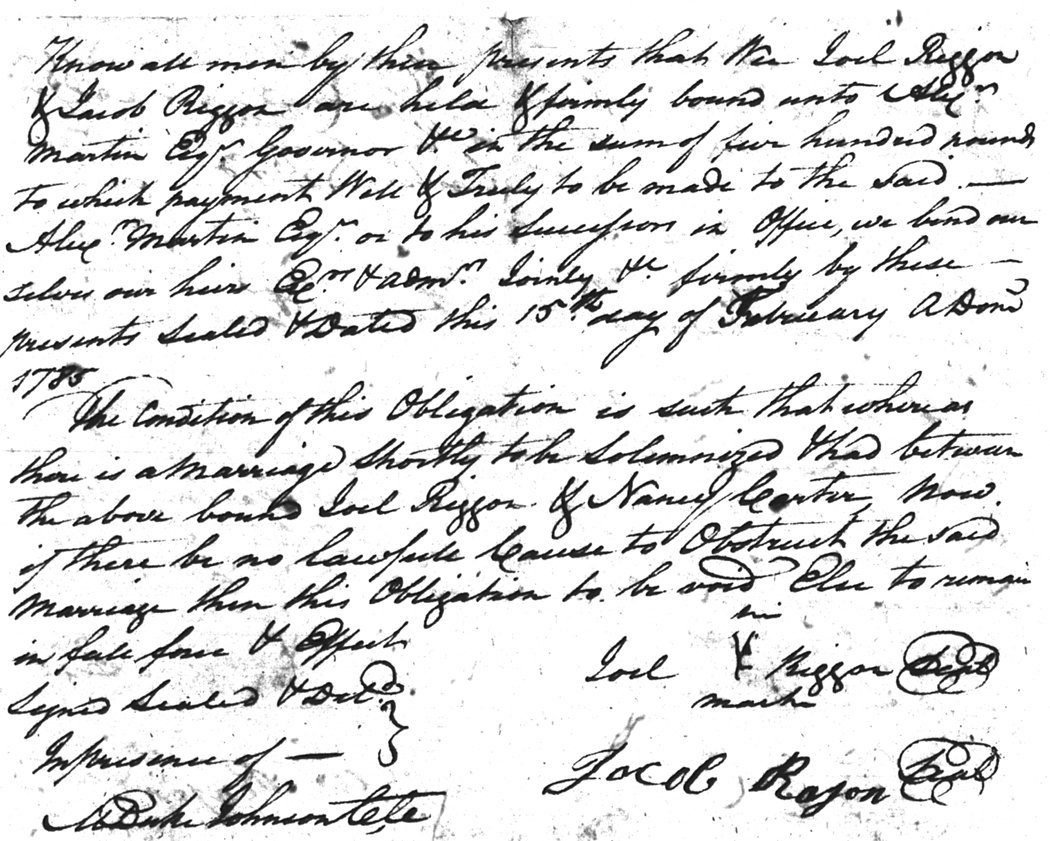 Know all men by these presents that Wee Joel Riggon
& Jacob Riggon are held & firmly bound unto Alexr.
Martin Esqr. Governor &c in the sum of five hundred pounds
to which payment Well & Truly to be made to the said —
Alexr. Martin Esqr. or to his successors in Office, we bind our
selves our heirs Exrs. & admrs. Jointly &c firmly by these —
presents Sealed & Dated this 15th day of February A Dom
1785
The Condition of this Obligation is such that whereas
there is a Marriage Shortly to be Solemnized & had between
the above bound Joel Riggon & Nancy Carter, Now.
if there be no lawfull Cause to Obstruct the said
Marriage then this Obligation to be void Else to remain
in full force & Effect
Signed Sealed & Deld.
In presence of —
A Duke Johnson Clk
his
Joel X Riggon Seal
mark
Jacob Ragon Seal